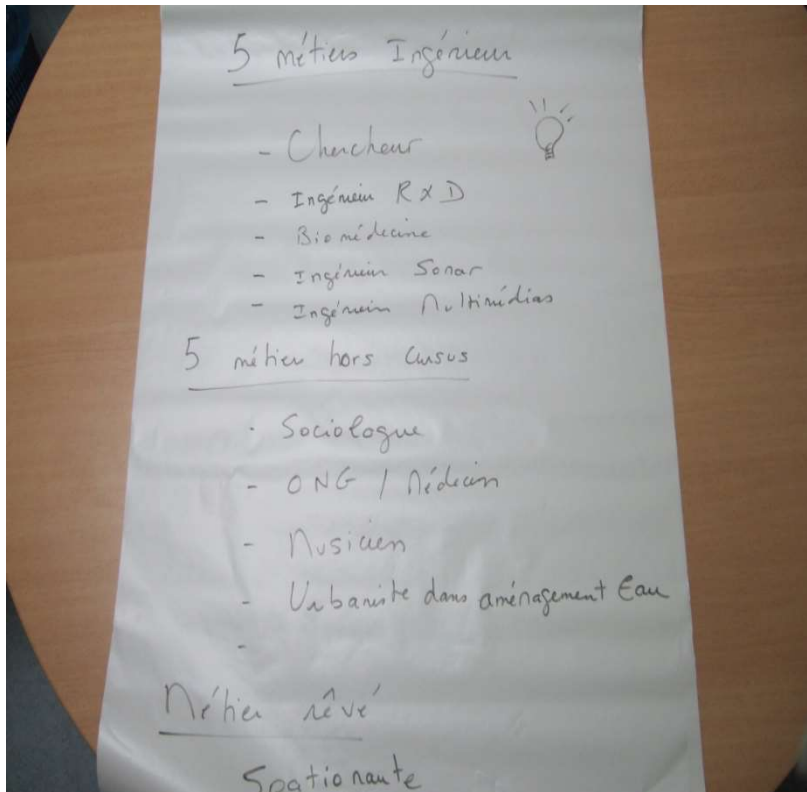 5 métiers Ingénieur
- Chercheur
- Ingénieur R & D
- Biomédecine
- Ingénieur Sonar
- Ingénieur Multimédias
5 métier hors cursus
- Sociologue
- ONG / Médecin
- Musicien
- Urbaniste dans aménagement Eau
-
Métier rêvé
Spationaute